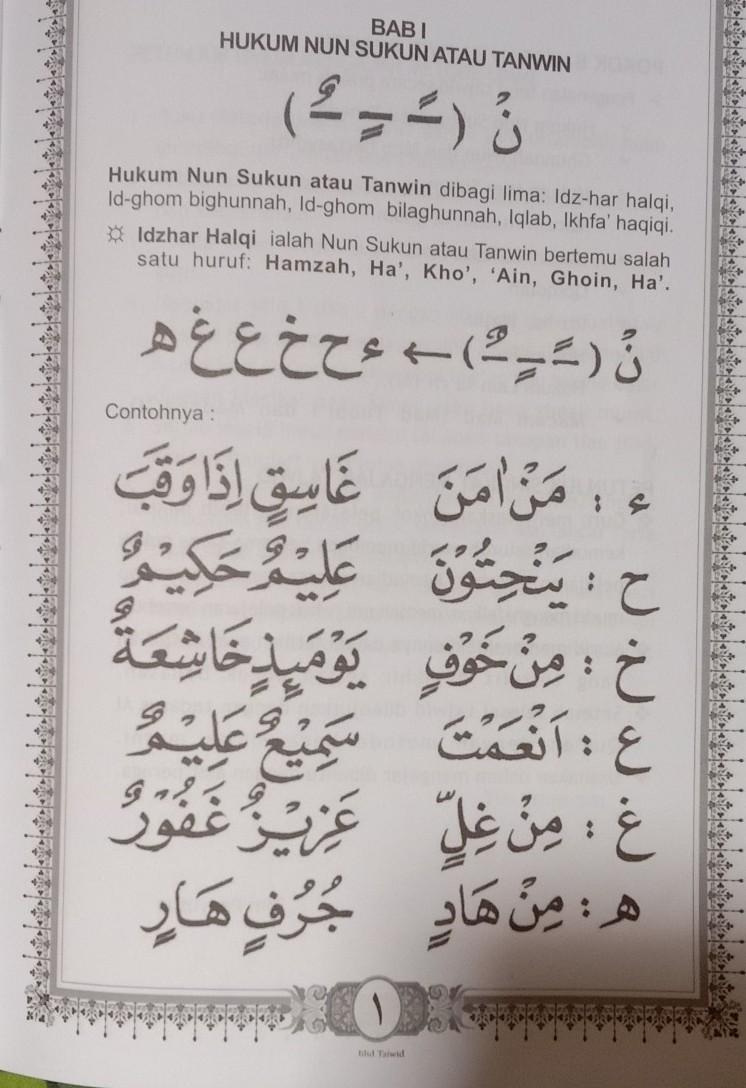 BAB I
HUKUM NUN SUKUN ATAU TANWIN
نْ (ـًـ ـٍـ ـٌـ)
Hukum Nun Sukun atau Tanwin dibagi lima: Idz-har halqi,
Id-ghom bighunnah, Id-ghom bilaghunnah, Iqlab, Ikhfa' haqiqi.
☼ Idzhar Halqi ialah Nun Sukun atau Tanwin bertemu salah
satu huruf: Hamzah, Ha', Kho', 'Ain, Ghoin, Ha'.
نْ (ـًـ ـٍـ ـٌـ) ← ء ح خ ع غ ه
Contohnya :
ء : مَنْ اٰمَنَ غَاسِقٍ اِذَا وَقَبَ
ح : يَنْحِتُوْنَ عَلِيْمٌ حَكِيْمٌ
خ : مِنْ خَوْفٍ يَوْمَئِذٍ خَاشِعَةٌ
ع : اَنْعَمْتَ سَمِيْعٌ عَلِيْمٌ
غ : مِنْ غِلٍّ عَزِيْزٌ غَفُوْرٌ
ه : مِنْ هَادٍ جُرُفٍ هَارٍ
١